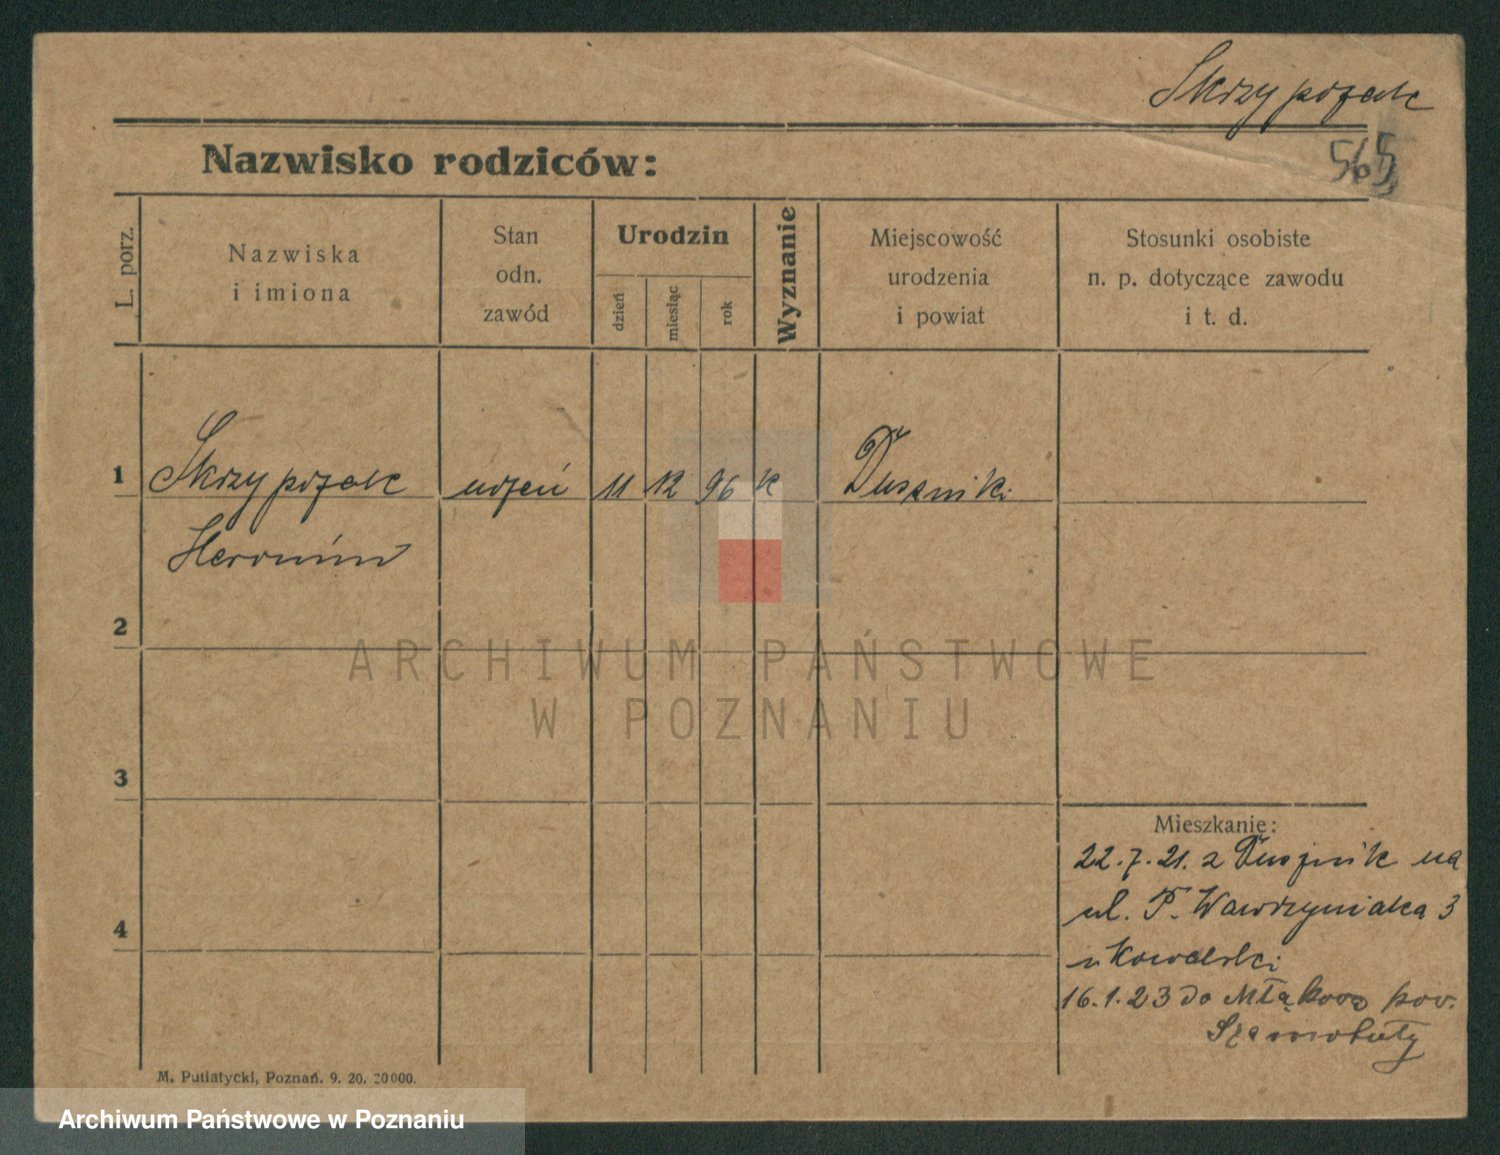 Skrzypczak
565
Nazwisko rodziców:
L. porz.
Nazwiska
i imiona
Stan
odn.
zawód
Urodzin
dzień
miesiąc
rok
Wyznanie
Miejscowość
urodzenia
i powiat
Stosunki osobiste
n. p. dotyczące zawodu
i t. d.
1 Skrzypczak uczeń 11 12 96 K Duszniki
Heronim
2
ARCHIWUM PAŃSTWOWE
W POZNANIU
3
Mieszkanie:
22.7.21. z Dusznik na
ul. P. Wawrzyniaka 3
u Kowalski
4
16.1.23 do pow.
Szamotuły
M. Putiatycki, Poznań. 9. 20. 20000.
Archiwum Państwowe w Poznaniu